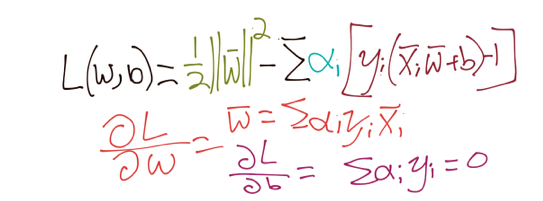 L(w,b)=½||w̅||² - Σαᵢ[yᵢ(x̅ᵢw̅+b)-1]
∂L/∂w = w̅ = Σαᵢyᵢx̅ᵢ
∂L/∂b = Σαᵢyᵢ=0